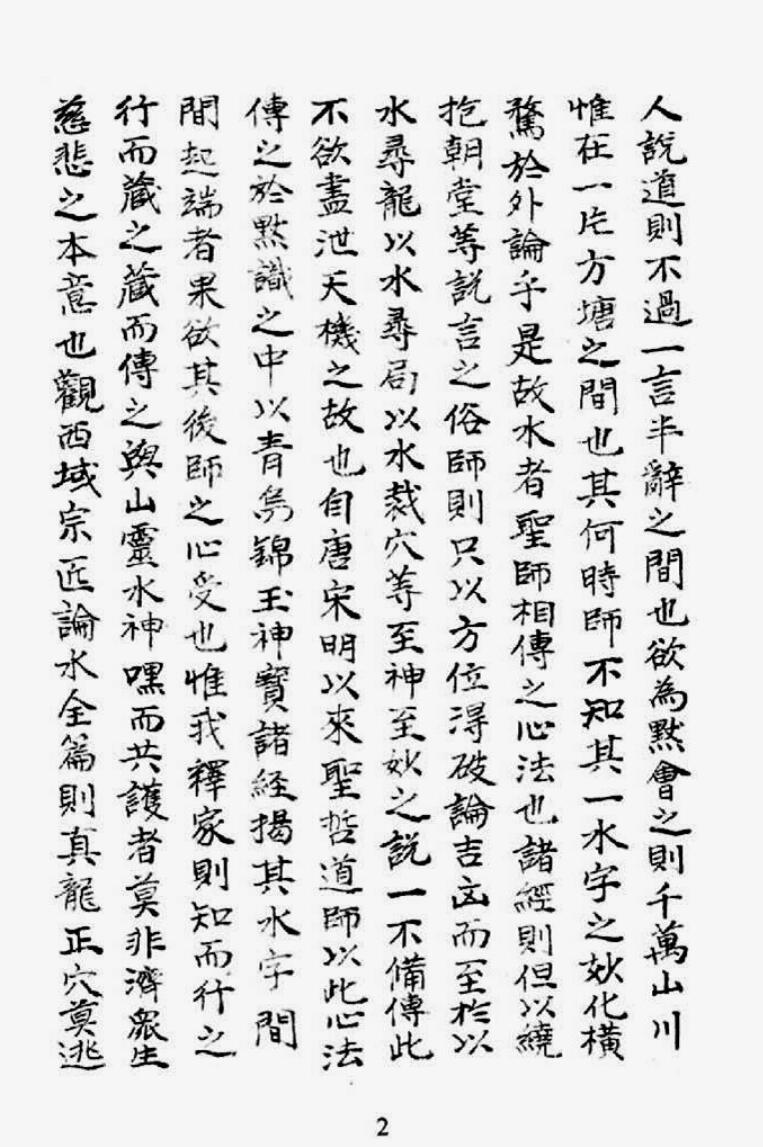 人說道則不過一言半辭之間也欲為黙會之則千萬山川
惟在一片方塘之間也其何時師不知其一水字之妙化橫
騖於外論乎是故水者聖師相傳之心法也諸經則但以繞
抱朝堂等說言之俗師則只以方位淂破論吉凶而至於以
水尋龍以水尋局以水裁穴等至神至妙之説一不備傳此
不欲盡泄天機之故也自唐宋明以來聖哲道師以此心法
傳之於黙識之中以青烏錦玉神寶諸経揭其水字間
間起端者果欲其後師之心受也惟我釋家則知而行之
行而藏之藏而傳之與山靈水神嘿而共護者莫非濟衆生
慈悲之本意也觀西域宗匠論水全篇則真龍正穴莫逃
2